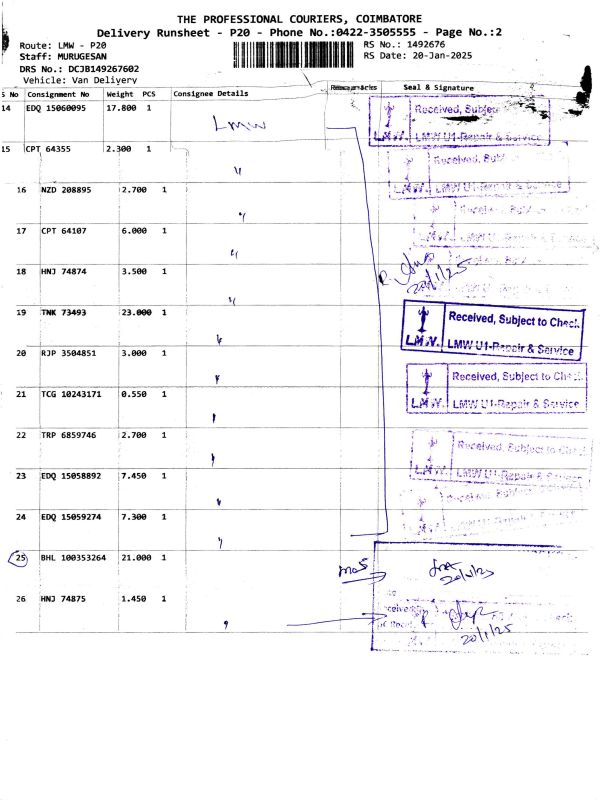 THE PROFESSIONAL COURIERS, COIMBATORE
Delivery Runsheet - P20 - Phone No.:0422-3505555 - Page No.:2
Route: LMW - P20
RS No.: 1492676
Staff: MURUGESAN
RS Date: 20-Jan-2025
DRS No.: DCJB149267602
Vehicle: Van Delivery
S No Consignment No Weight PCS Consignee Details Seal & Signature
14 EDQ 15060095 17.800 1 LMW
Received, Subjec
L.M.W. LMW U1-Repair & Service
15 CPT 64355 2.300 1 "
Received, Su
LMW U1-Repair & Service
16 NZD 208895 2.700 1 "
17 CPT 64107 6.000 1 "
18 HNJ 74874 3.500 1 "
20/1/25
19 TNK 73493 23.000 1 "
Received, Subject to Check
L.M.W. LMW U1-Repair & Service
20 RJP 3504851 3.000 1 "
21 TCG 10243171 0.550 1 "
Received, Subject to Check
L.M.W. LMW U1-Repair & Service
22 TRP 6859746 2.700 1 "
Received, Subject to Ch
L.M.W. LMW U1-Repair & Service
23 EDQ 15058892 7.450 1 "
24 EDQ 15059274 7.300 1 "
25 BHL 100353264 21.000 1
20/1/25
26 HNJ 74875 1.450 1 "
20/1/25